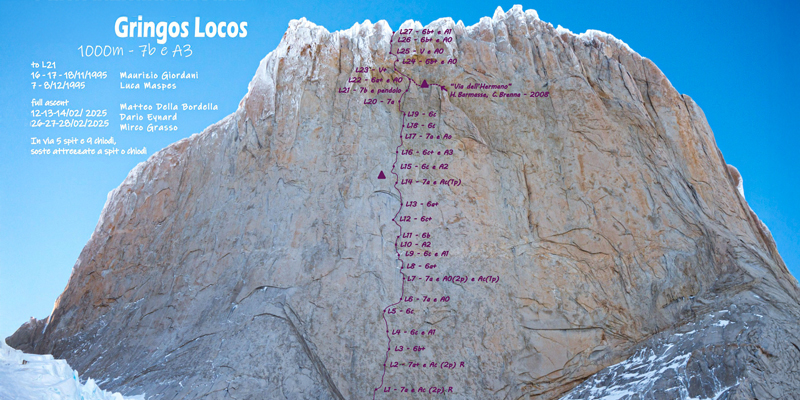 Gringos Locos
1000m - 7b e A3
to L21
16 - 17 - 18/11/1995 Maurizio Giordani
7 - 8/12/1995 Luca Maspes
full ascent
12-13-14/02/2025 Matteo Della Bordella
26-27-28/02/2025 Dario Eynard
Mirco Grasso
In via 5 spit e 9 chiodi,
soste attrezzate a spit o chiodi
L27 - 6b+ e A1
L26 - 6b+ e A0
L25 - V e A0
L24 - 5b+ e A0
L23 - V+
L22 - 6a+ e A0
L21 - 7b e pendolo
L20 - 7a
"Via dell'Hermano"
H. Barmasse, C. Brenna - 2008
L19 - 6c
L18 - 6c
L17 - 7a e A0
L16 - 6c+ e A3
L15 - 6c e A2
L14 - 7a e Ac(1p)
L13 - 6a+
L12 - 6c+
L11 - 6b
L10 - A2
L9 - 6c e A1
L8 - 6a+
L7 - 7a e A0(2p) e Ac(1p)
L6 - 7a e A0
L5 - 6c
L4 - 6c e A1
L3 - 6b+
L2 - 7a+ e Ac (2p) R
L1 - 7a e Ac (2p) R